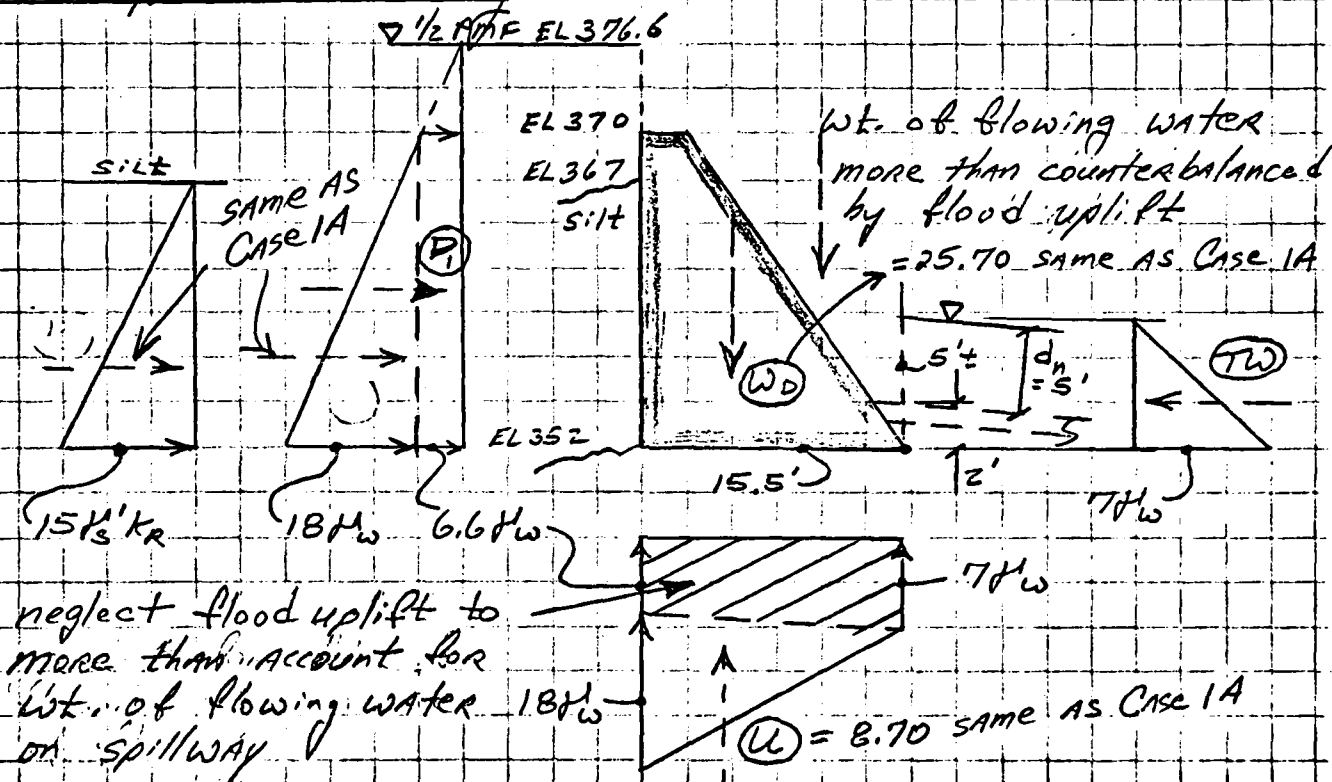 ▽ 1/2 PMF EL 376.6
EL 370
EL 367
silt
silt
SAME AS
CASE 1A
P1
wt. of flowing water
more than counterbalanced
by flood uplift
= 25.70 SAME AS CASE 1A
▽
5'±
dn
= 5'
TW
WD
EL 352
15.5'
2'
7γw
15γs'KR
18γw
6.6γw
7γw
neglect flood uplift to
more than account for
wt. of flowing water
on spillway
18γw
U = 8.70 SAME AS CASE 1A